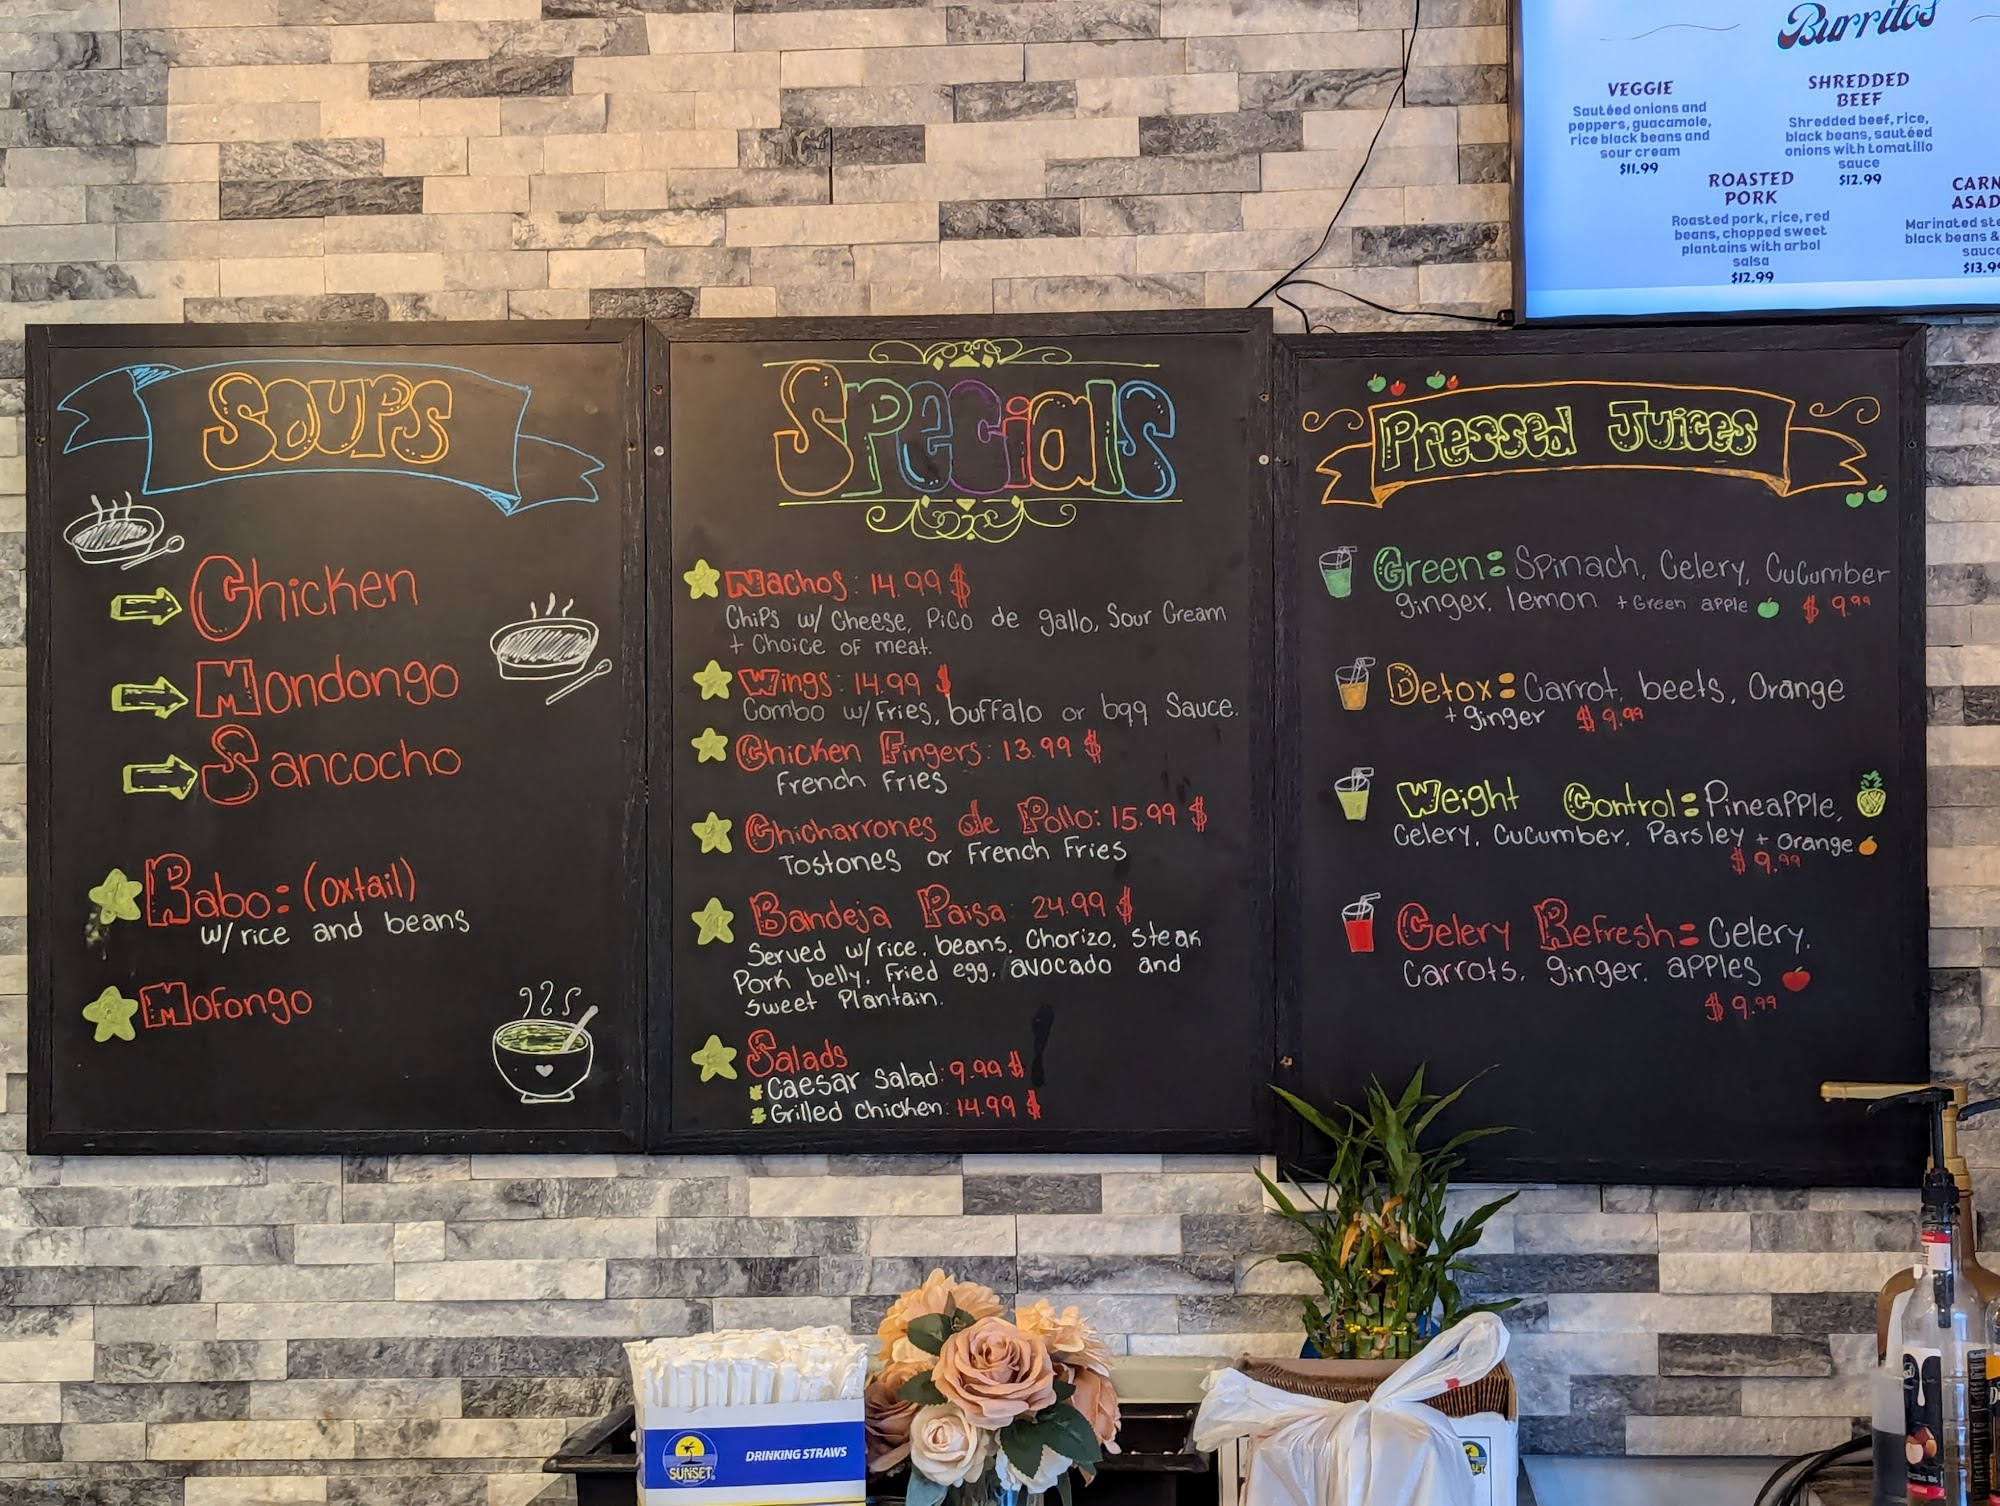 Soups
Chicken
Mondongo
Sancocho
Rabo: (oxtail)
w/ rice and beans
Mofongo
Specials
Nachos: 14.99 $
Chips w/ Cheese, Pico de gallo, Sour Cream
+ Choice of meat.
Wings: 14.99 $
Combo w/ Fries, buffalo or bqq Sauce.
Chicken Fingers: 13.99 $
French Fries
Chicharrones de Pollo: 15.99 $
Tostones or French Fries
Bandeja Paisa: 24.99 $
Served w/ rice, beans, Chorizo, Steak
Pork belly, Fried egg, avocado and
Sweet Plantain.
Salads
Caesar Salad: 9.99 $
Grilled chicken: 14.99 $
Pressed Juices
Green: Spinach, Celery, Cucumber
ginger, lemon + Green apple $ 9.99
Detox: Carrot, beets, Orange
+ ginger $ 9.99
Weight Control: Pineapple,
Celery, Cucumber, Parsley + orange
$ 9.99
Celery Refresh: Celery,
Carrots, ginger, apples
$ 9.99
Burritos
VEGGIE
Sautéed onions and
peppers, guacamole,
rice black beans and
sour cream
$11.99
SHREDDED
BEEF
Shredded beef, rice,
black beans, sautéed
onions with tomatillo
sauce
$12.99
ROASTED
PORK
Roasted pork, rice, red
beans, chopped sweet
plantains with arbol
salsa
$12.99
CARN
ASAD
Marinated ste
black beans &
sauce
$13.9
SUNSET
DRINKING STRAWS